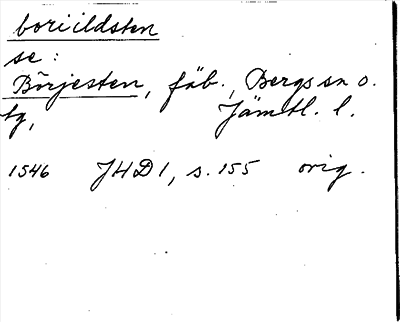 boriildsten
se:
Börjesten, fäb., Bergs sn o.
tg, Jämtl. l.
1546 JHD 1, s. 155 orig.